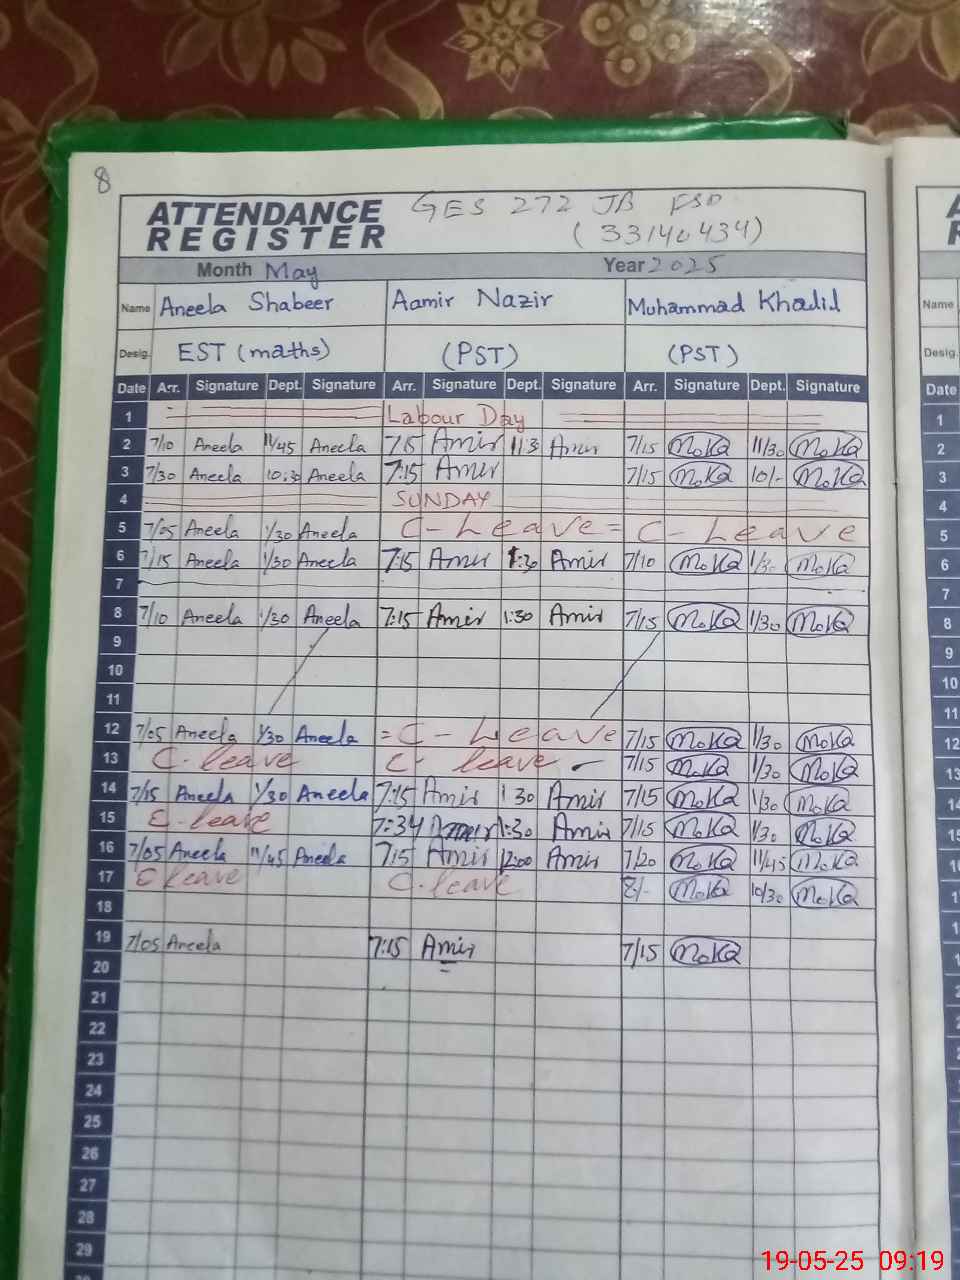 8
ATTENDANCE REGISTER
GES 272 JB FSD
(33140434)
Month May Year 2025
Name Aneela Shabeer Aamir Nazir Muhammad Khalil Name
Desig. EST (maths) (PST) (PST) Desig.
Date Arr. Signature Dept. Signature Arr. Signature Dept. Signature Arr. Signature Dept. Signature Date
1 Labour Day 1
2 7/10 Aneela 11/45 Aneela 7:15 Amir 11:3 Amir 7/15 MoKQ 11/30 MoKQ 2
3 7/30 Aneela 10:30 Aneela 7:15 Amir 7/15 MoKQ 10/- MoKQ 3
4 SUNDAY 4
5 7/05 Aneela 1/30 Aneela C-Leave = C-Leave 5
6 7/15 Aneela 1/30 Aneela 7:15 Amir 1:30 Amir 7/10 MoKQ 1/30 MoKQ 6
7 7
8 7/10 Aneela 1/30 Aneela 7:15 Amir 1:30 Amir 7/15 MoKQ 1/30 MoKQ 8
9 9
10 10
11 11
12 7/05 Aneela 1/30 Aneela = C-Leave 7/15 MoKQ 1/30 MoKQ 12
13 C-leave C-leave 7/15 MoKQ 1/30 MoKQ 13
14 7/15 Aneela 1/30 Aneela 7:15 Amir 1 30 Amir 7/15 MoKQ 1/30 MoKQ 14
15 C-leave 7:34 Amir 1:30 Amir 7/15 MoKQ 1/30 MoKQ 15
16 7/05 Aneela 11/45 Aneela 7:15 Amir 12:00 Amir 7/20 MoKQ 11/45 MoKQ
17 C leave C.leave 8/- MoKQ 10/30 MoKQ
18
19 7/05 Aneela 7:15 Amir 7/15 MoKQ
20
21
22
23
24
25
26
27
28
29
19-05-25 09:19